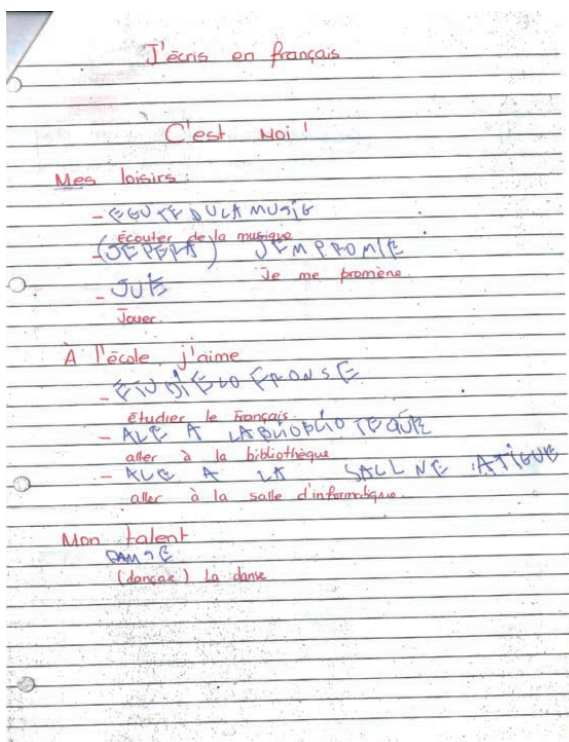 J'écris en français
C'est Moi !
Mes loisirs :
- EGUTE DULA MUSIG
écouter de la musique
- (JEPEPA) JEMPROMIE
Je me promène.
- JUE
Jouer.
À l'école, j'aime
- ETUDIE LO FRONSE
étudier le Français.
- ALE A LABLIOBLIOTEQUE
aller à la bibliothèque
- ALE A LA SALL NE ATIGUE
aller à la salle d'informatique.
Mon talent
DAMSE
(dançae) La danse